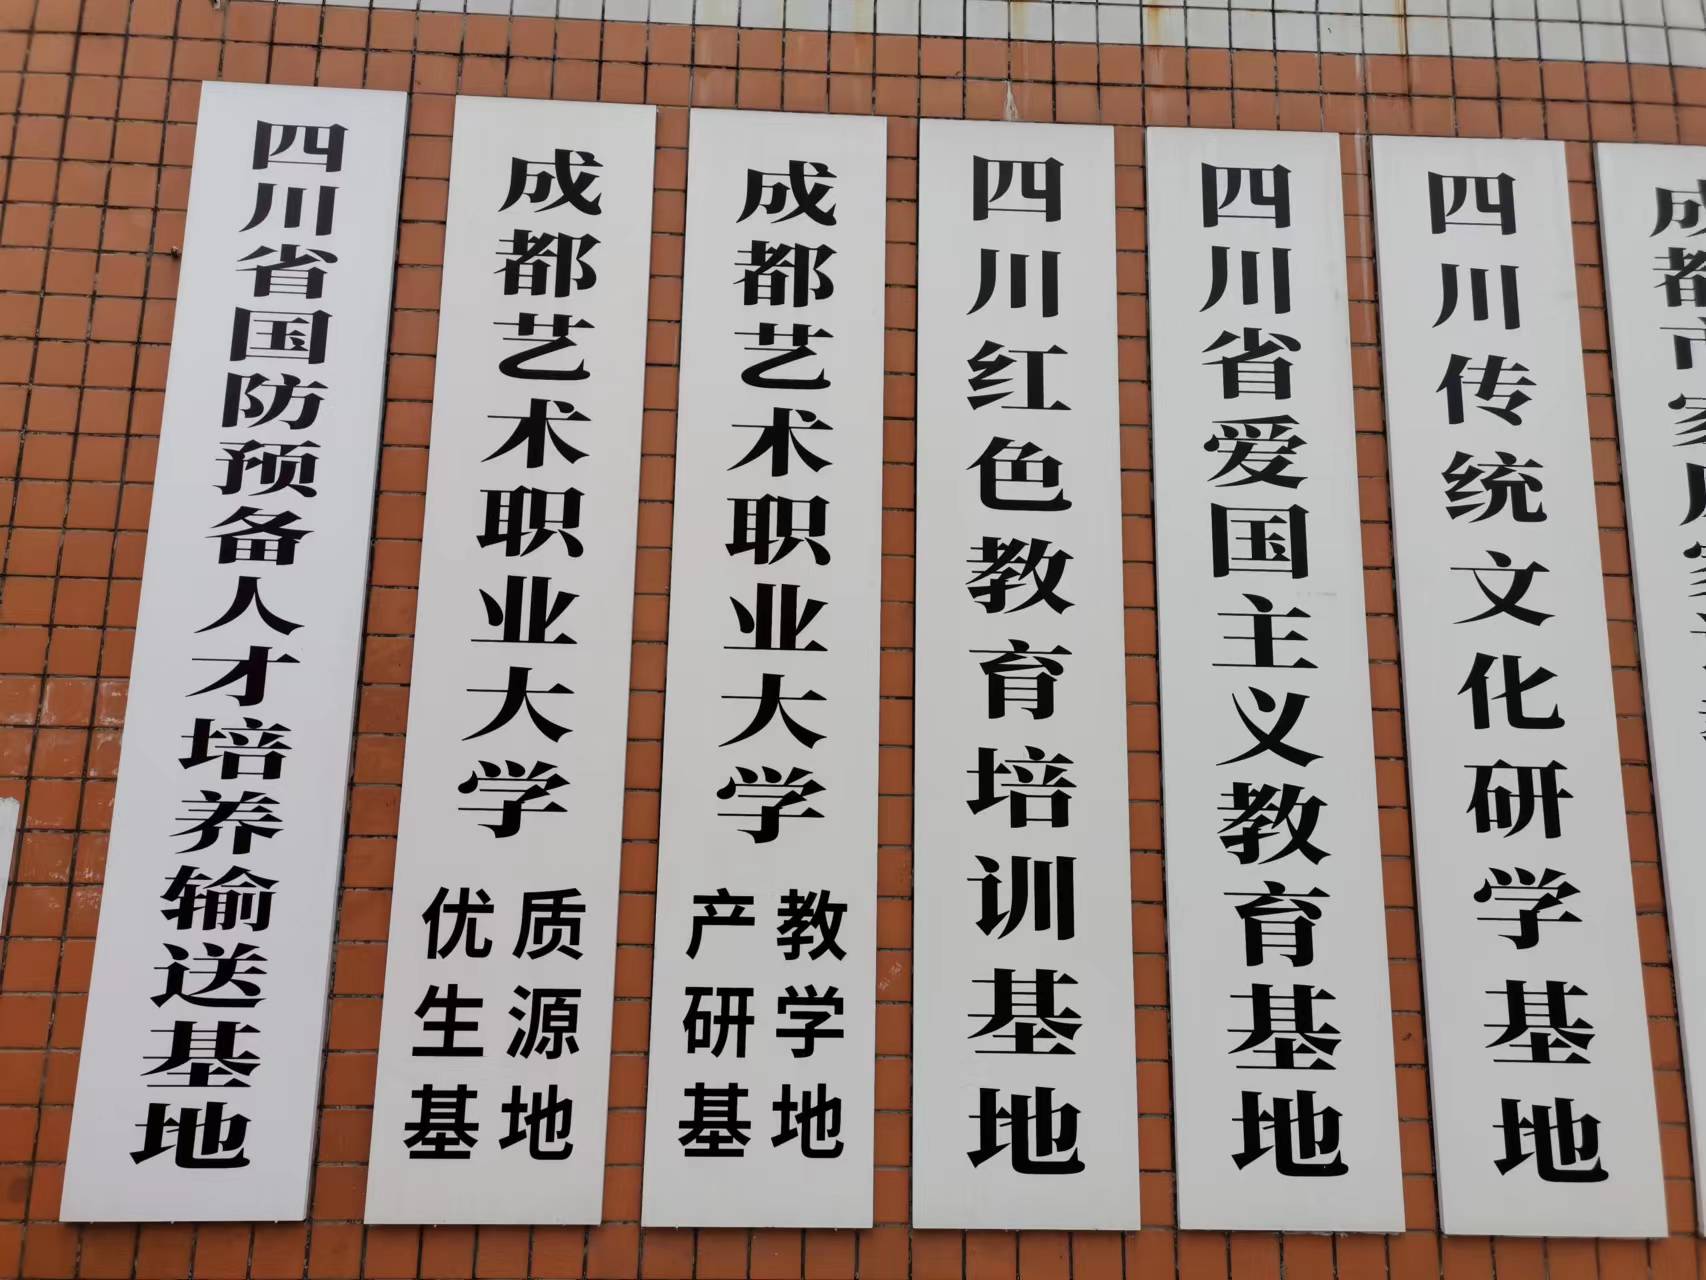 四川省国防预备人才培养输送基地
成都艺术职业大学
优质
生源
基地
成都艺术职业大学
产教
研学
基地
四川红色教育培训基地
四川省爱国主义教育基地
四川传统文化研学基地
成都市家